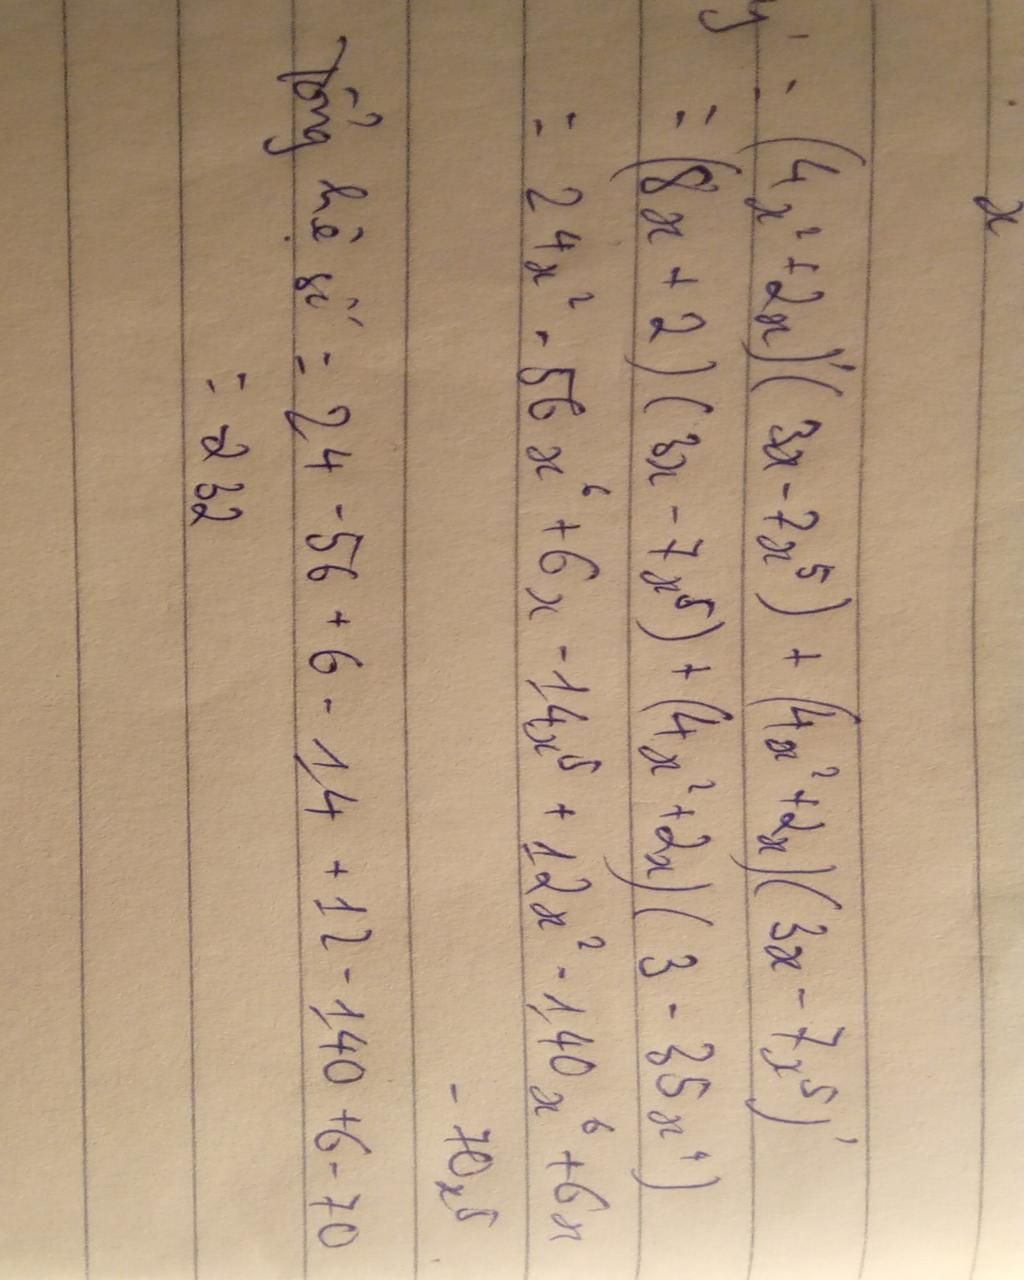 x
y' = (4x² + 2x)'(3x - 7x⁵) + (4x² + 2x)(3x - 7x⁵)'
= (8x + 2)(3x - 7x⁵) + (4x² + 2x)(3 - 35x⁴)
= 24x² - 56x⁶ + 6x - 14x⁵ + 12x² - 140x⁶ + 6x
- 70x⁵
Tổng hệ số = 24 - 56 + 6 - 14 + 12 - 140 + 6 - 70
= 232